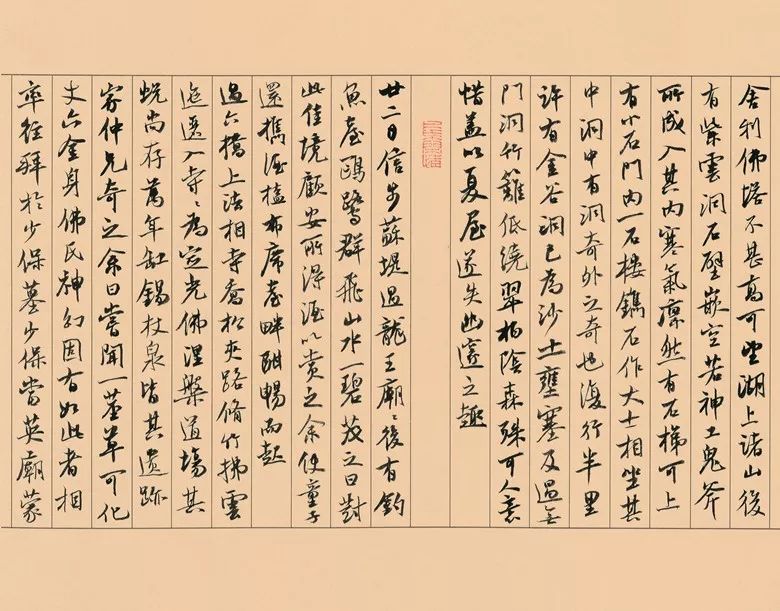 舍利佛塔不甚高可望湖上諸山後
有紫雲洞石壁嵌空若神工鬼斧
所成入其内寒氣凛然有石梯可上
有小石門内一石樓鐫石作大士相坐其
中洞中有洞奇外之奇也復行半里
許有金谷洞已為沙土壅塞及過無
門洞竹籬低繞翠柏陰森殊可人意
惜蓋以夏屋遂失幽邃之趣
廿二日信步蘇堤過龍王廟〻後有釣
魚臺鷗鷺群飛山水一碧茂之曰對
此佳境顧安所得酒以賞之余使童子
還攜酒榼布席臺畔酣暢而起
過六橋上法相寺喬松夾路脩竹拂雲
迤邐入寺〻為定光佛涅槃道場其
蛻尚存萬年缸錫杖泉皆其遺跡
家仲兄奇之余曰嘗聞一莖草可化
丈六金身佛氏神幻固有如此者相
率徑拜於少保墓少保當英廟蒙